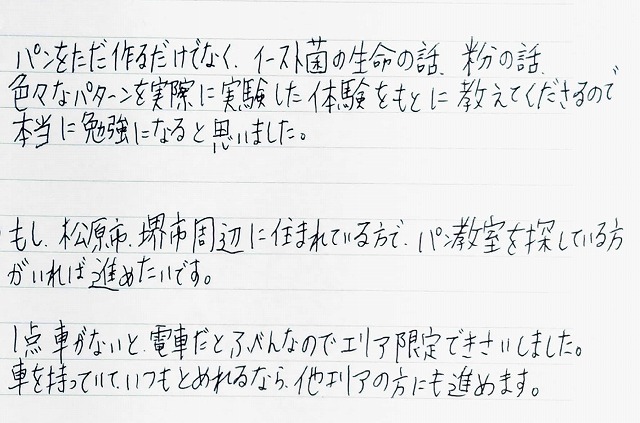 パンをただ作るだけでなく、イースト菌の生命の話、粉分の話、
色々なパターンを実際に実験した体験をもとに教えてくださるので
本当に勉強になると思いました。
もし、松原市、堺市周辺に住まれている方で、パン教室を探している方
がいれば進めたいです。
1点車がないと、電車だとふべんなのでエリア限定できさいしました。
車を持っていて、いつもとめれるなら、他エリアの方にも進めます。